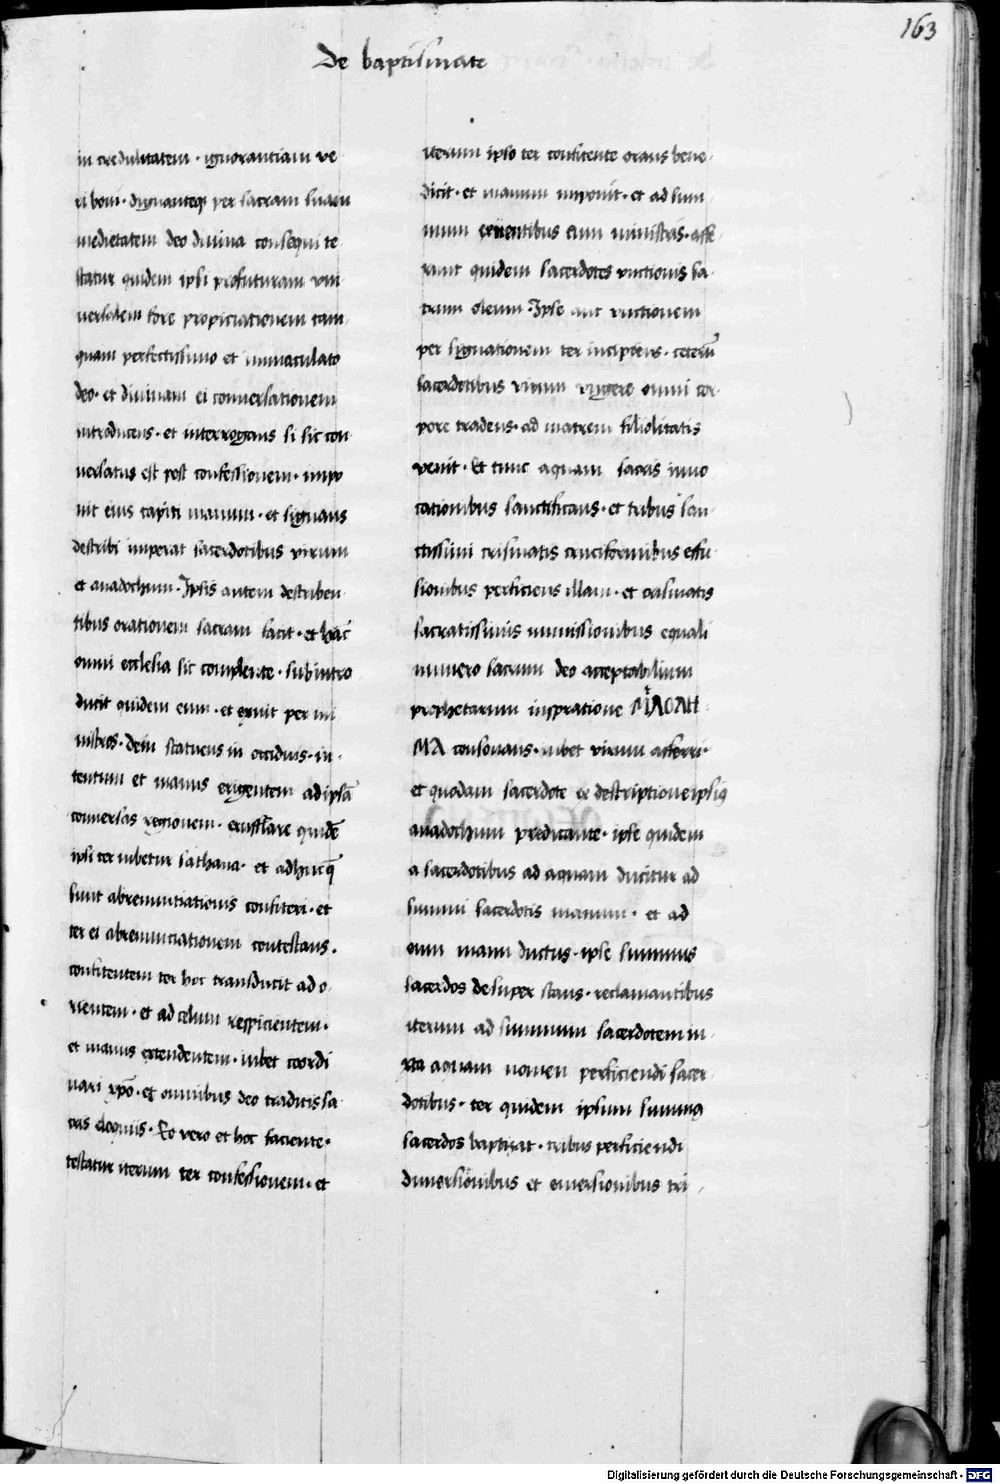 163
De baptismate
in credulitatem · ignorantiam ve
ri boni · dignanteqꝫ per sacram suam
medietatem deo diuina consequi te
statur quidem ipsi profuturam vni
uersalem fore propiciationem tam
quam perfectissimo et immaculato
deo · et diuinam ei conuersationem
introducens · et interrogans si sic con
uersatus est post confessionem · impo
nit eius capiti manum · et signans
describi imperat sacerdotibus virum
et anadochum · Ipsis autem describen
tibus orationem sacram facit · et hāc
omni ecclesia sic complente · subintro
ducit quidem eum · et exuit per mi
nistros · dein statuens in occiduis · in
tentum et manus erigentem ad ipsā
conuersas regionem · exufflare quidē
ipsi ter iubetur sathana · et adhuc q̄
sunt abrenuntiationis confiteri · et
ter ei abrenunciationem contestans ·
confitentem ter hoc transducit ad o
rientem · et ad celum respicientem ·
et manus extendentem · iubet coordi
nari xpō · et omnibus deo traditis sa
cris eloquiis · Eo vero et hoc faciente ·
testatur iterum ter confessionem · et
iterum ipso ter confitente orans bene
dicit · et manum imponit · et ad sum
mum exuentibus eum ministris · affe
runt quidem sacerdotes vnctionis sa
crum oleum · Ipse aut vnctionem
per signationem ter incipiens · ceterū
sacerdotibus virum vngere omni cor
pore tradens · ad matrem filiolitatis
venit · Et tunc aquam sacris inuo
cationibus sanctificans · et tribus san
ctissimi crismatis cruciformibus effu
sionibus perficiens illam · et crismatis
sacratissimis immissionibus equali
numero sacrum deo acceptabilium
prophetarum inspiratione
MA consonans · iubet virum afferri ·
et quodam sacerdote ex descriptione ipsiꝰ
anadochum predicante · ipse quidem
a sacerdotibus ad aquam ducitur ad
summi sacerdotis manum · et ad
eum manu ductus · ipse summus
sacerdos desuper stans · reclamantibus
iterum ad summum sacerdotem iu
xta aquam nomen perficiendi sacer
dotibus · ter quidem ipsum summꝰ
sacerdos baptizat · tribus perficiendi
dimersionibus et emersionibus tri
Digitalisierung gefördert durch die Deutsche Forschungsgemeinschaft - DFG